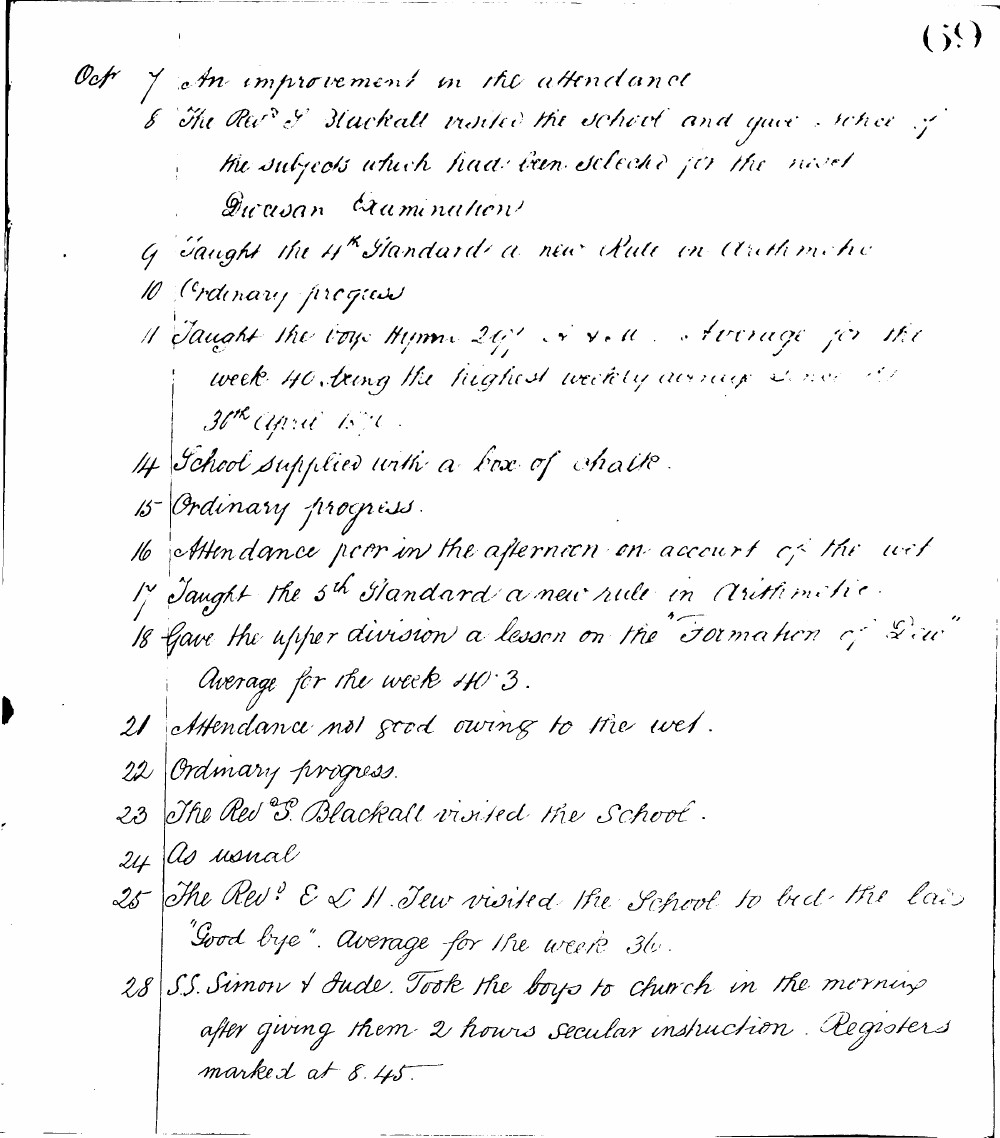 69
Oct 7 An improvement in the attendance
8 The Revd S Blackall visited the school and gave notice of
the subjects which had been selected for the next
Diocesan Examination
9 Taught the 4th Standard a new Rule in Arithmetic
10 Ordinary progress
11 Taught the boys Hymn A & M. Average for the
week 40, being the highest weekly average since
30th April
14 School supplied with a box of chalk.
15 Ordinary progress.
16 Attendance poor in the afternoon on account of the wet
17 Taught the 5th Standard a new rule in Arithmetic.
18 Gave the upper division a lesson on the "Formation of Dew"
Average for the week 40·3.
21 Attendance not good owing to the wet.
22 Ordinary progress.
23 The Revd S. Blackall visited the School.
24 As usual
25 The Revd. E L H. Tew visited the School to bid the lads
"Good bye". Average for the week 36.
28 S.S. Simon & Jude. Took the boys to church in the morning
after giving them 2 hours secular instruction. Registers
marked at 8.45.